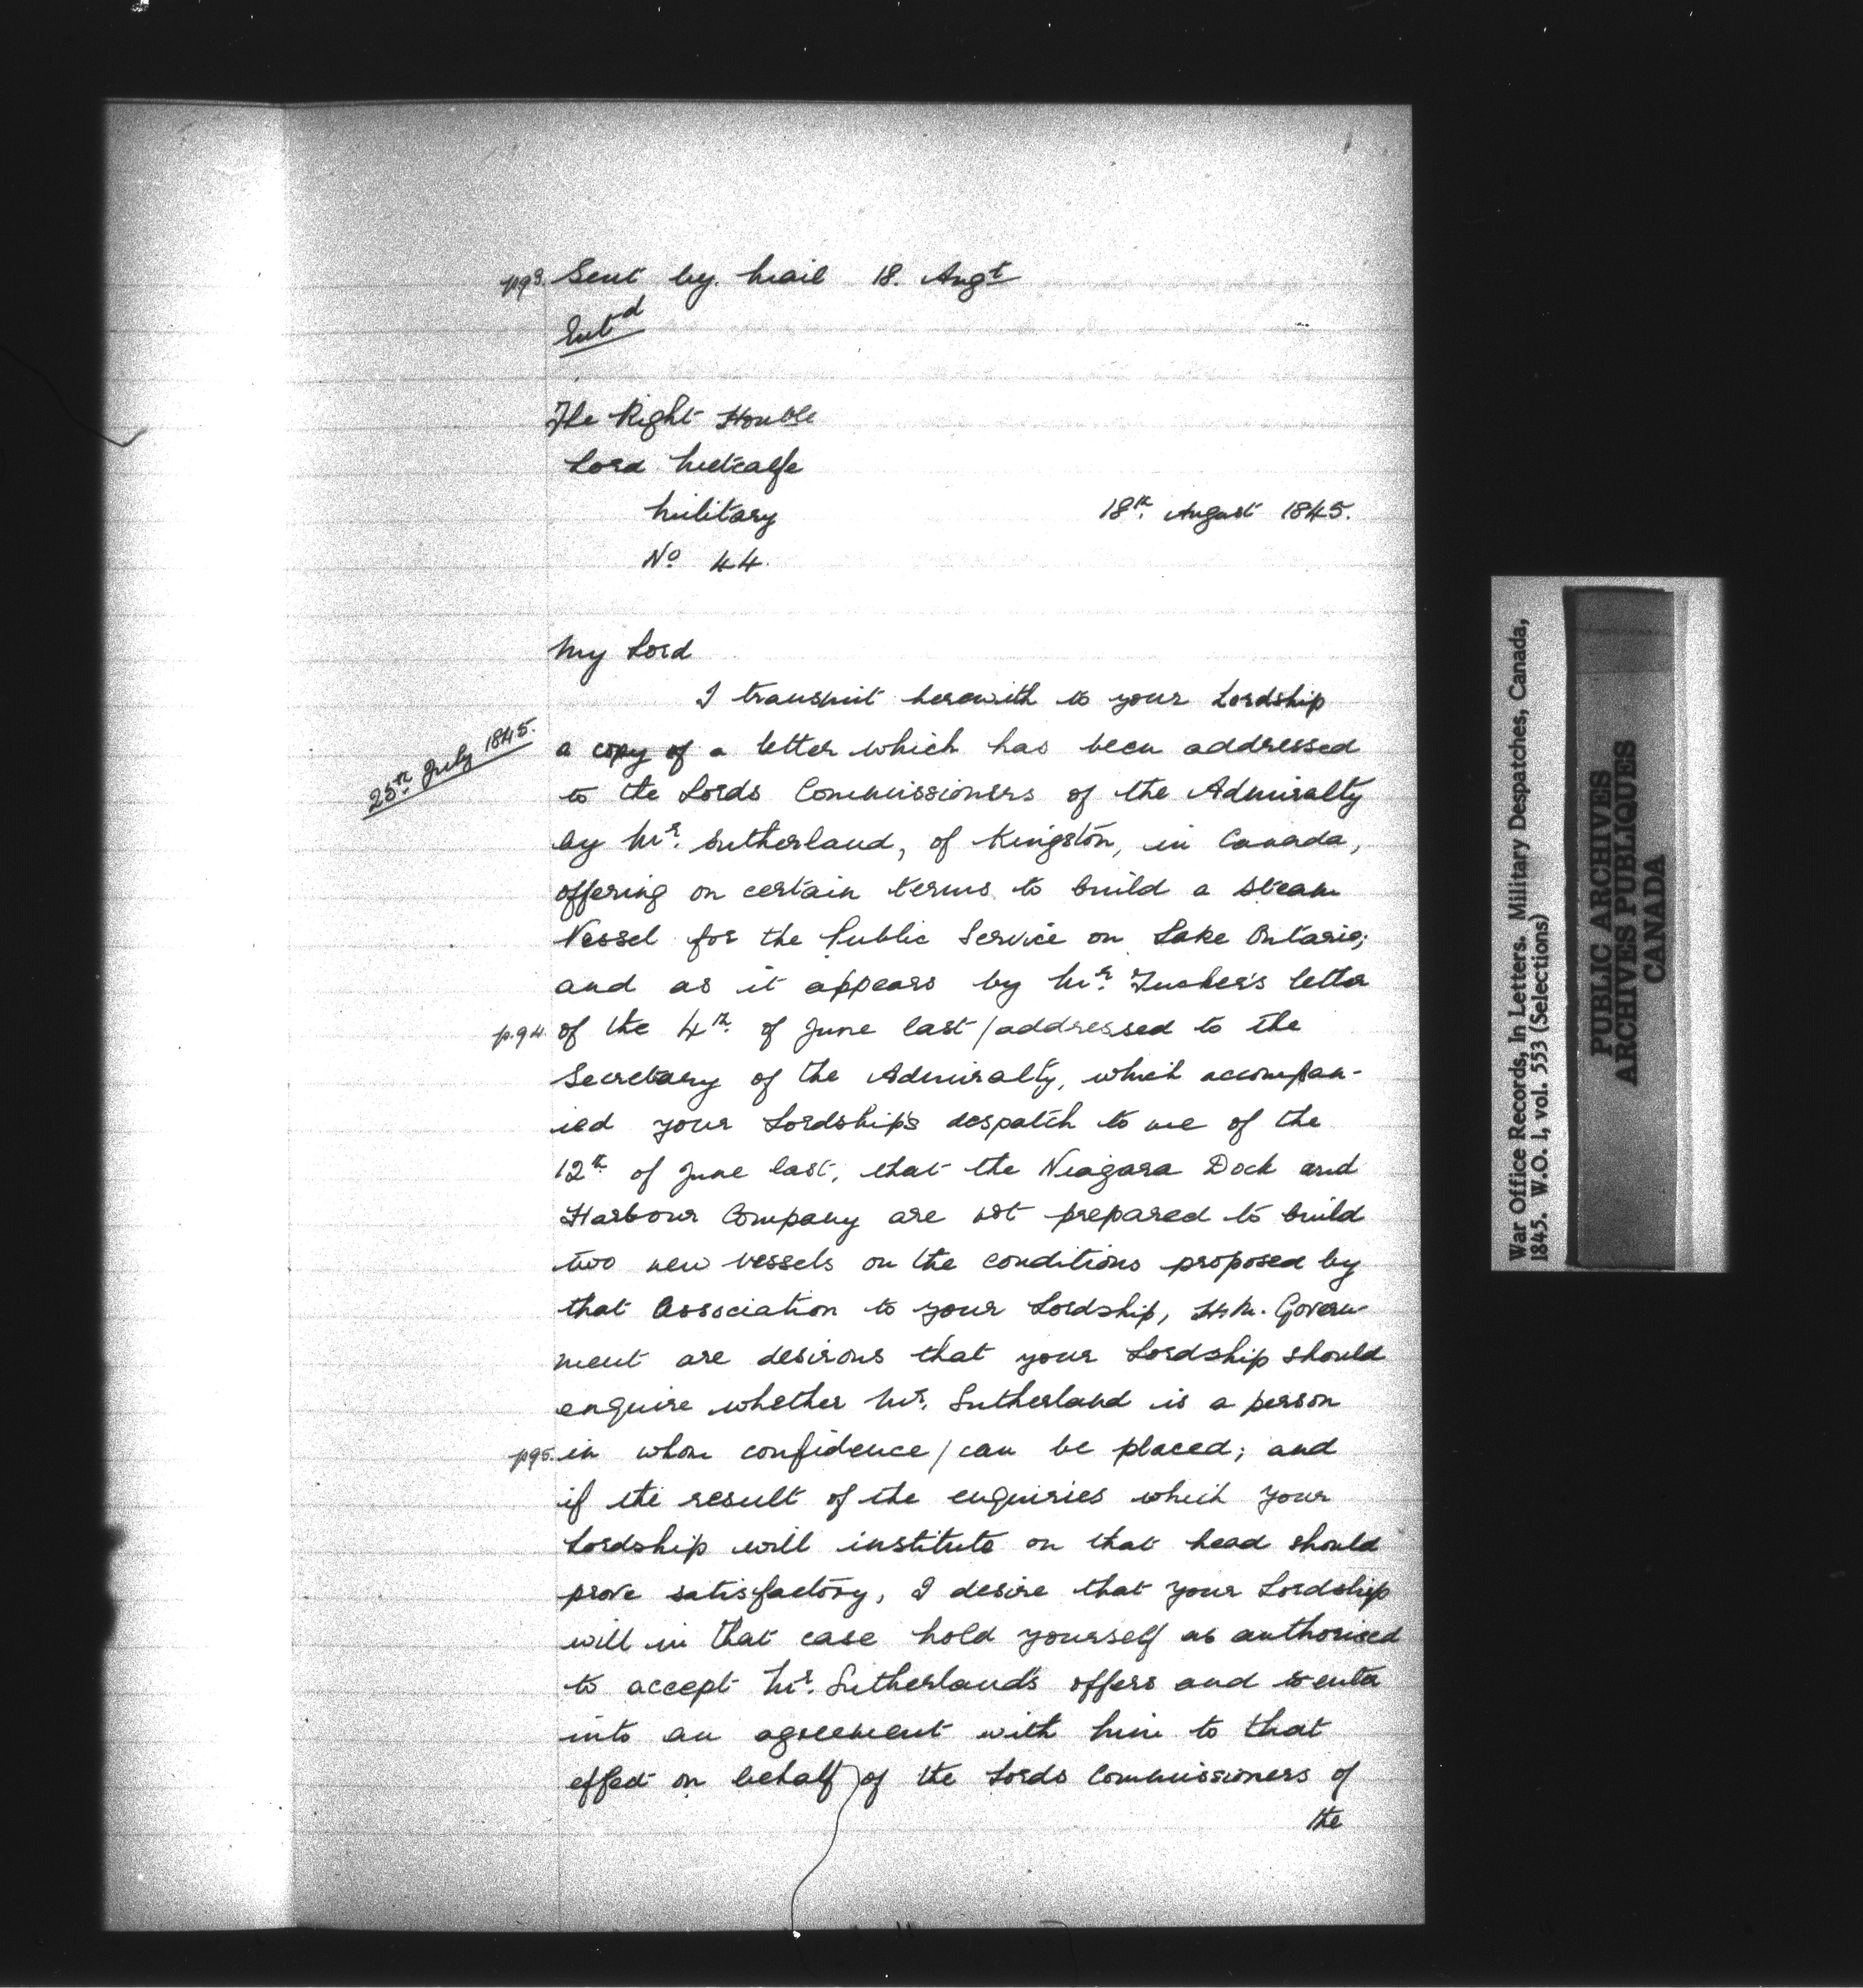 p93. Sent by mail 18. Augt
Entd
The Right Honble
Lord Metcalfe
Military
18th. August 1845.
No 44.
My Lord
I transmit herewith to your Lordship
25th July 1845.
a copy of a letter which has been addressed
to the Lords Commissioners of the Admiralty
by Mr. Sutherland, of Kingston, in Canada,
offering on certain terms to build a steam
Vessel for the Public Service on Lake Ontario;
and as it appears by Mr. Tucker's letter
p.94. of the 4th. of June last / addressed to the
Secretary of the Admiralty, which accompan-
ied your Lordship's despatch to me of the
12th of June last, that the Niagara Dock and
Harbour Company are not prepared to build
two new vessels on the conditions proposed by
that Association to your Lordship, H.M. Govern-
ment are desirous that your Lordship should
enquire whether Mr. Sutherland is a person
p95. in whom confidence / can be placed; and
if the result of the enquiries which your
Lordship will institute on that head should
prove satisfactory, I desire that your Lordship
will in that case hold yourself as authorised
to accept Mr. Sutherland's offers and to enter
into an agreement with him to that
effect on behalf of the Lords Commissioners of
the
War Office Records, In Letters. Military Despatches, Canada,
1845. W.O. 1, vol. 553 (Selections)
PUBLIC ARCHIVES
ARCHIVES PUBLIQUES
CANADA